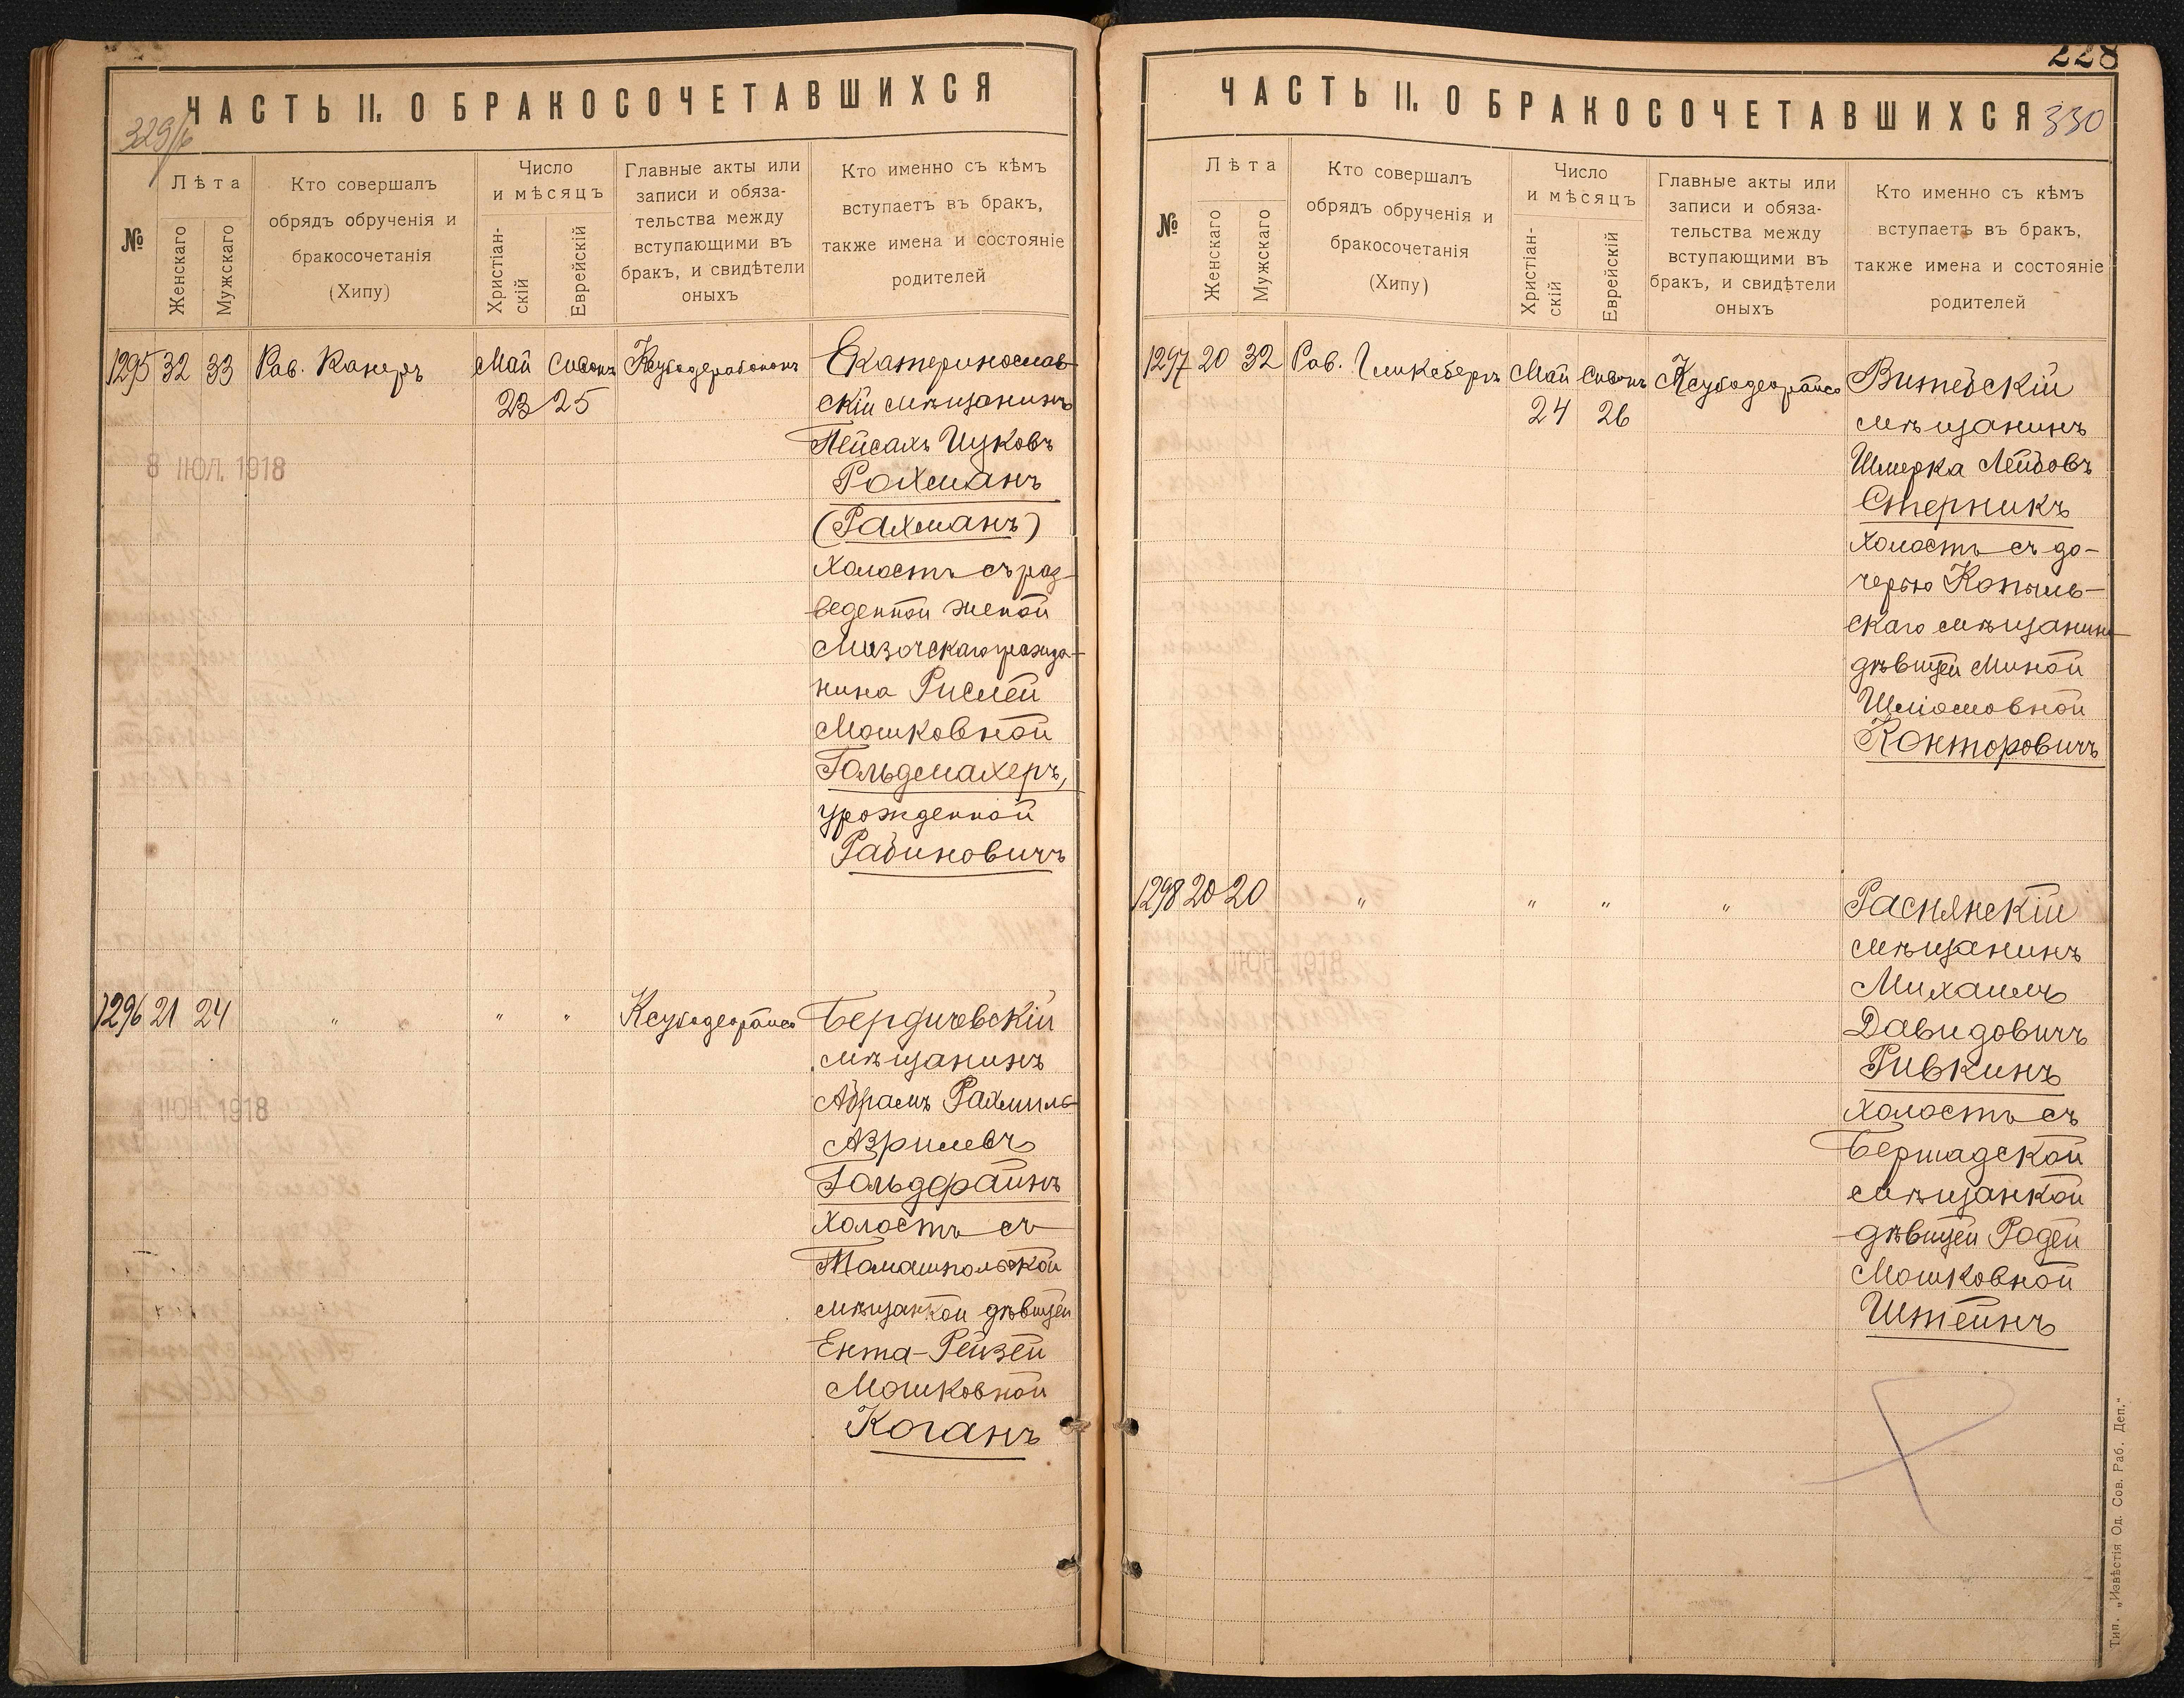 ЧАСТЬ II. О БРАКОСОЧЕТАВШИХСЯ
329/б
№
Лѣта
Женскаго
Мужскаго
Кто совершалъ
обрядъ обрученія и
бракосочетанія
(Хипу)
Число
и мѣсяцъ
Христіан-
скій
Еврейскій
Главные акты или
записи и обяза-
тельства между
вступающими въ
бракъ, и свидѣтели
оныхъ
Кто именно съ кѣмъ
вступаетъ въ бракъ,
также имена и состояніе
родителей
1295 32 33 Рав. Канеръ Май 23 Сивонъ 25
Екатеринослав-
скій мѣщанинъ
Пейсахъ Ицковъ
Рохманъ
(Рахманъ)
холостъ съ раз-
веденной женой
Мизочскаго гражда-
нина Рислей
Мошковной
Гольдмахеръ,
урожденной
Рабиновичъ
8 ІЮЛ. 1918
1296 21 24 " " " " Ксубодеорайсо
Бердичевскій
мѣщанинъ
Абрамъ Рахмиль
Азрилевъ
Гольдфайнъ
холостъ съ
Томашпольской
мѣщанкой дѣвицей
Ента-Рейзей
Мошковной
Коганъ
ІЮН. 1918
ЧАСТЬ II. О БРАКОСОЧЕТАВШИХСЯ
228
330
№
Лѣта
Женскаго
Мужскаго
Кто совершалъ
обрядъ обрученія и
бракосочетанія
(Хипу)
Число
и мѣсяцъ
Христіан-
скій
Еврейскій
Главные акты или
записи и обяза-
тельства между
вступающими въ
бракъ, и свидѣтели
оныхъ
Кто именно съ кѣмъ
вступаетъ въ бракъ,
также имена и состояніе
родителей
1297 20 32 Рав. Гликсбергъ Май 24 Сивонъ 26 Ксубодеорайсо
Витебскій
мѣщанинъ
Шмерка Лейбовъ
Стерникъ
холостъ съ до-
черью Копыль-
скаго мѣщанина
дѣвицей Миной
Шліомовной
Конторовичъ
1298 20 20 " " " "
Раснянскій
мѣщанинъ
Михаилъ
Давидовичъ
Ривкинъ
холостъ съ
Бершадской
мѣщанкой
дѣвицей Родей
Мошковной
Штейнъ
Тип. „Извѣстія Од. Сов. Раб. Деп.“